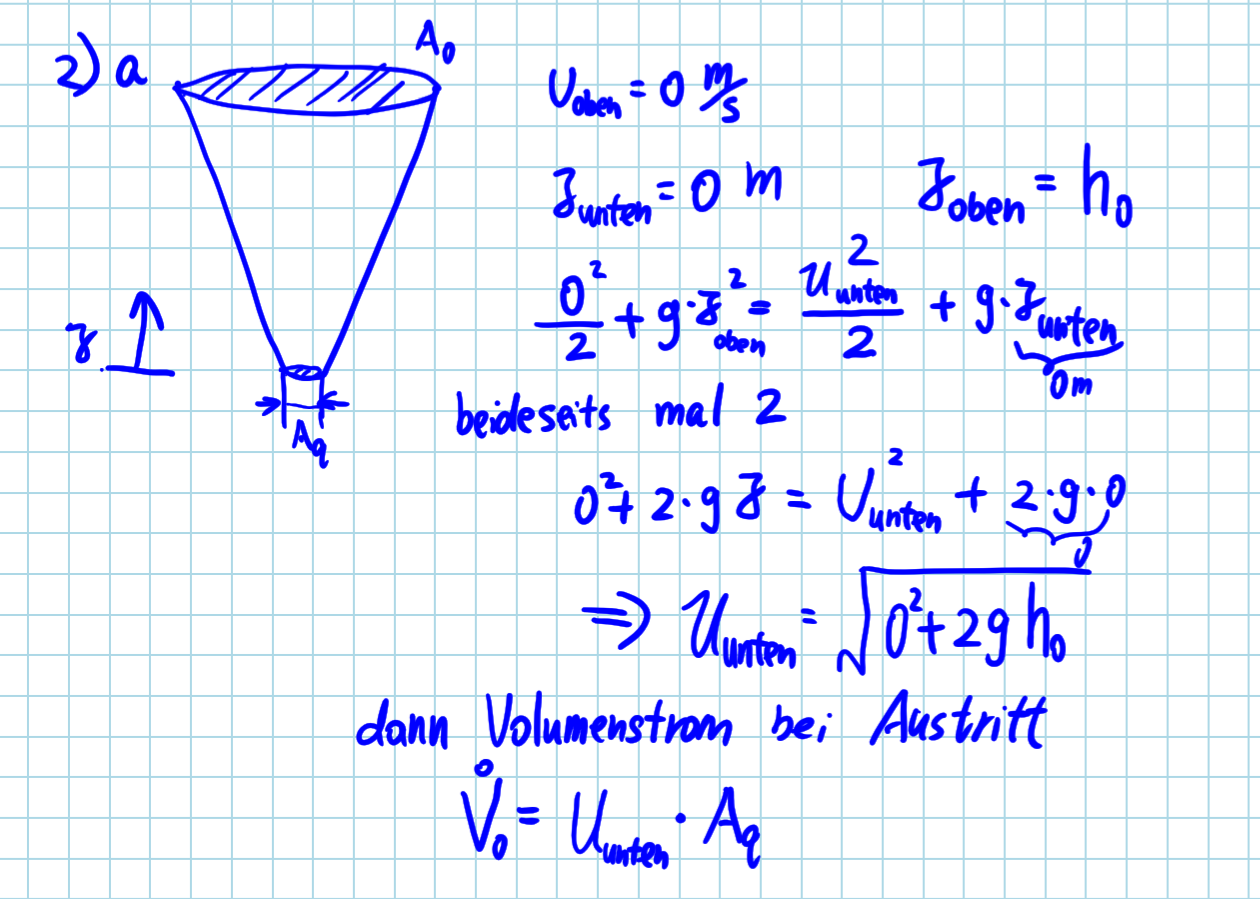 2) a
A₀
U_oben = 0 m/s
z_unten = 0 m z_oben = h₀
0²/2 + g·z²_oben = u²_unten/2 + g·z_unten
0m
z
A_q
beideseits mal 2
0² + 2·g z = U²_unten + 2·g·0
0
⇒ U_unten = √(0² + 2g h₀)
dann Volumenstrom bei Austritt
V̊₀ = U_unten · A_q